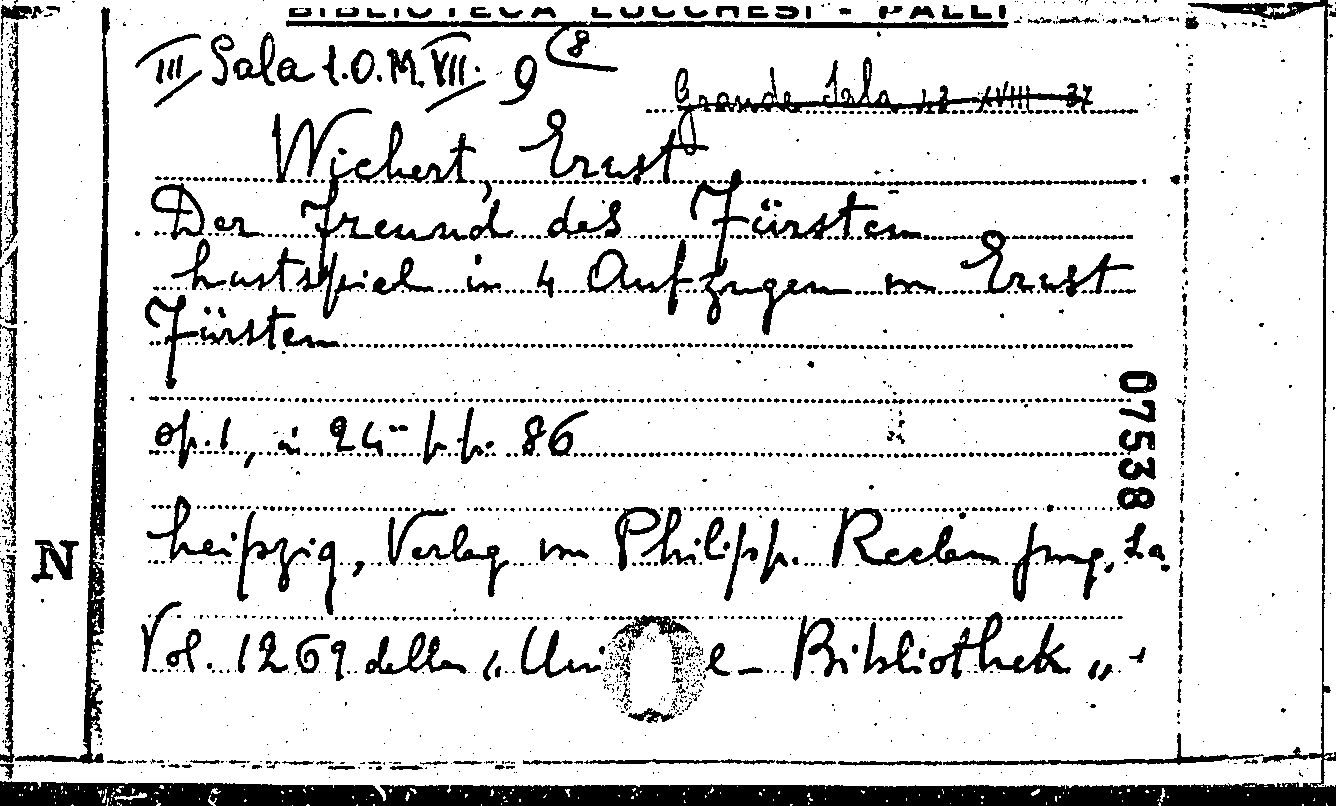 BIBLIOTECA LUCCHESI - PALLI
III Sala 1.O.M.VII. 9 (8
Grande Sala 42 XVIII 37
Wichert, Ernst
Der Freund des Fürsten
Lustspiel in 4 Aufzügen von Ernst
Fürsten
op. 1, in 24° pp. 86
Leipzig, Verlag von Philipp. Reclam jung, s.a.
Vol. 1269 della „Uni e- Bibliothek „
07538
N